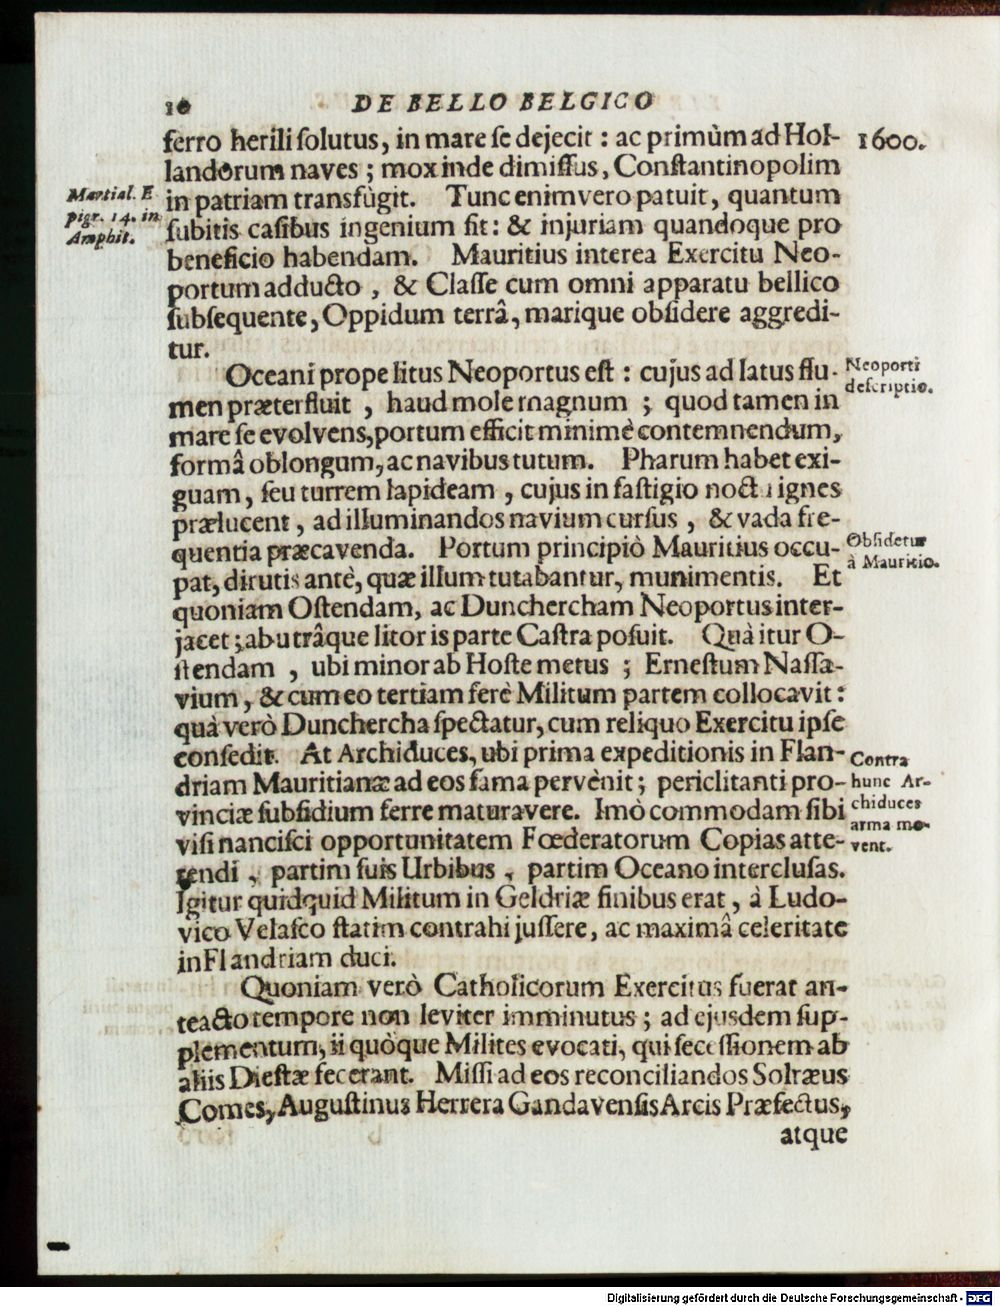 10 DE BELLO BELGICO
ferro herili ſolutus, in mare ſe dejecit : ac primùm ad Hol-
1600.
landorum naves ; mox inde dimiſſus, Conſtantinopolim
Martial. E
pigr. 14. in
Amphit.
in patriam transfùgit. Tunc enimvero patuit, quantum
ſubitis caſibus ingenium ſit : & injuriam quandoque pro
beneficio habendam. Mauritius interea Exercitu Neo-
portum adducto , & Claſſe cum omni apparatu bellico
ſubſequente, Oppidum terrâ, marique obſidere aggredi-
tur.
Oceani prope litus Neoportus eſt : cujus ad latus flu-
Neoporti
deſcriptio.
men præterfluit , haud mole magnum ; quod tamen in
mare ſe evolvens, portum efficit minimè contemnendum,
formâ oblongum, ac navibus tutum. Pharum habet exi-
guam, ſeu turrem lapideam , cujus in faſtigio noctu ignes
prælucent, ad illuminandos navium curſus , & vada fre-
quentia præcavenda. Portum principiò Mauritius occu-
Obſidetur
à Mauritio.
pat, dirutis antè, quæ illum tutabantur, munimentis. Et
quoniam Oſtendam, ac Dunchercham Neoportus inter-
jacet ; ab utrâque litoris parte Caſtra poſuit. Quà itur O-
ſtendam , ubi minor ab Hoſte metus ; Erneſtum Naſſa-
vium, & cum eo tertiam ferè Militum partem collocavit :
quà verò Dunchercha ſpectatur, cum reliquo Exercitu ipſe
conſedit. At Archiduces, ubi prima expeditionis in Flan-
Contra
hunc Ar-
chiduces
arma mo-
vent.
driam Mauritianæ ad eos fama pervènit ; periclitanti pro-
vinciæ ſubſidium ferre maturavere. Imò commodam ſibi
viſi nanciſci opportunitatem Fœderatorum Copias atte-
rendi , partim ſuis Urbibus , partim Oceano intercluſas.
Igitur quidquid Militum in Geldriæ finibus erat, à Ludo-
vico Velaſco ſtatim contrahi juſſere, ac maximâ celeritate
in Flandriam duci.
Quoniam verò Catholicorum Exercitus fuerat an-
teacto tempore non leviter imminutus ; ad ejusdem ſup-
plementum, ii quòque Milites evocati, qui ſeceſſionem ab
aliis Dieſtæ fecerant. Miſſi ad eos reconciliandos Solræus
Comes, Auguſtinus Herrera Gandavenſis Arcis Præfectus,
atque
Digitalisierung gefördert durch die Deutsche Forschungsgemeinschaft - DFG